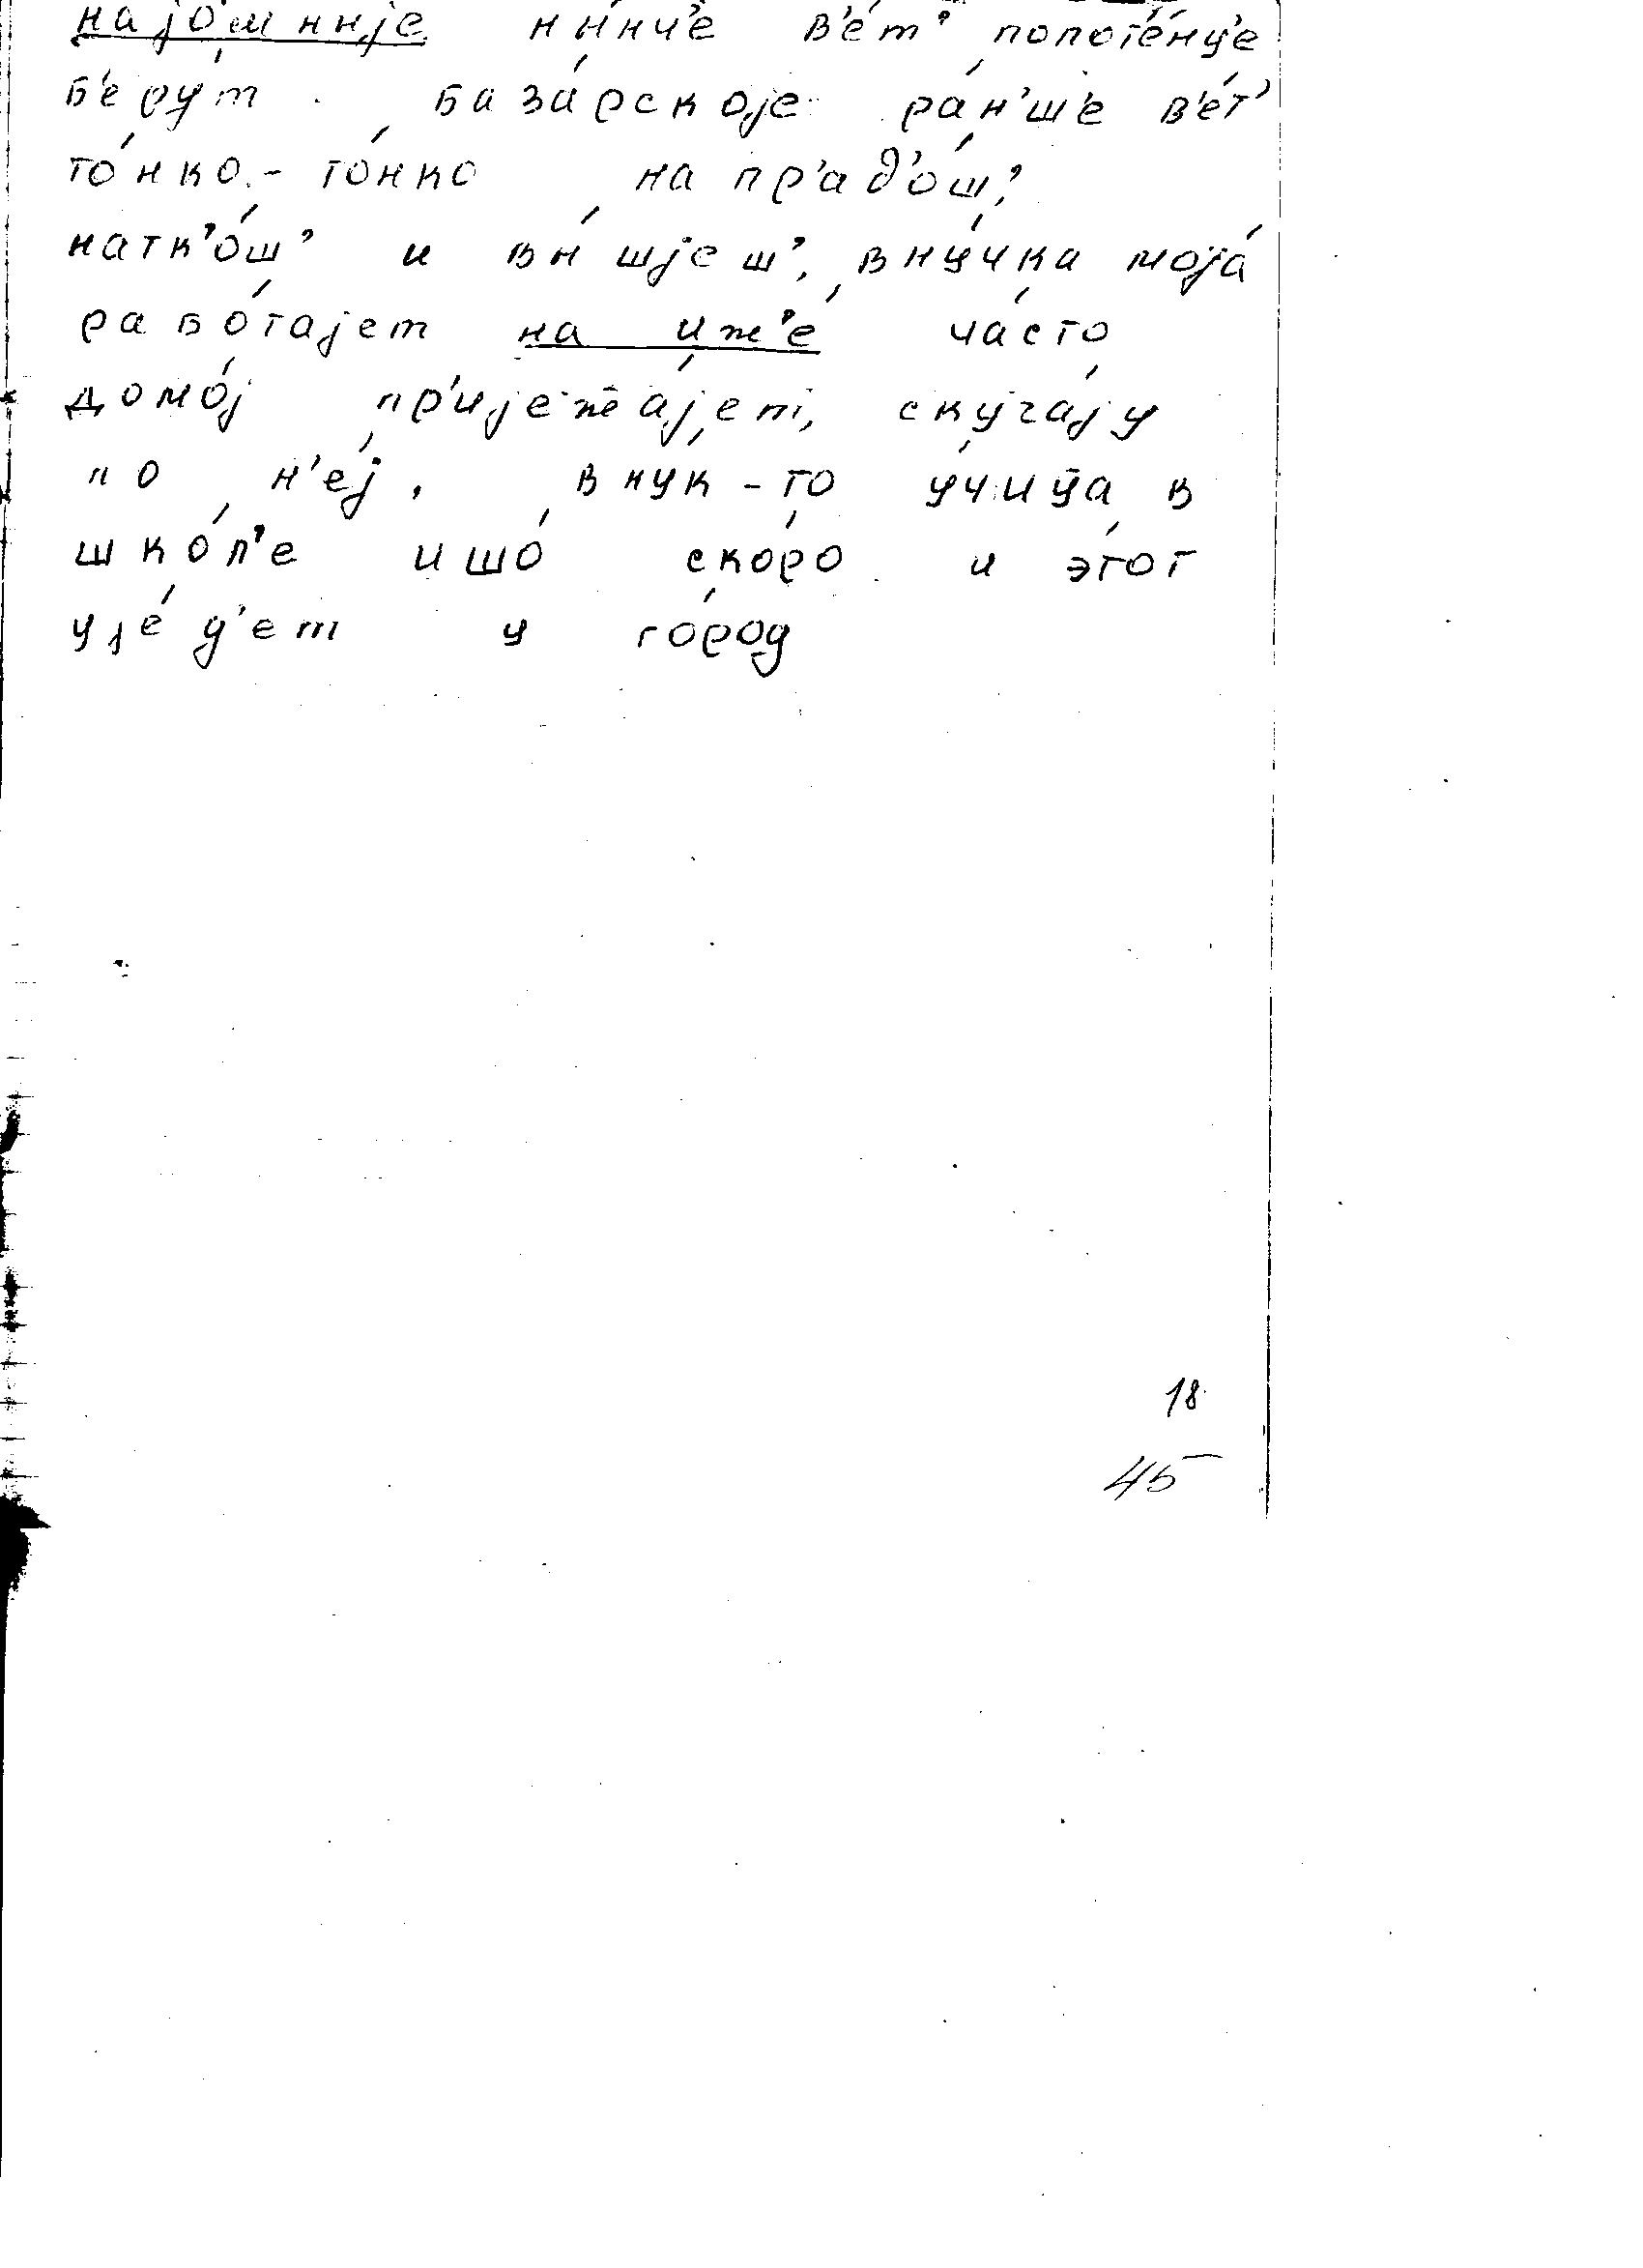 најо́мније ны́нч'е в'е́т' полоте́нц'е
б'еру́т. база́рскоје ра́н'ш'е в'е́т'
то́нко-то́нко напр'ад'о́ш'
натк'о́ш' и вы́шјеш', вну́чка моја́
рабо́тајет на иж'е́ ча́сто
домо́ј пр'ијеж̄а́јет, скуча́ју
по н'еј, внук-то у́чиц̄а в
шко́л'е ишо́ ско́ро и э́тот
ује́д'ет у го́род
18
45